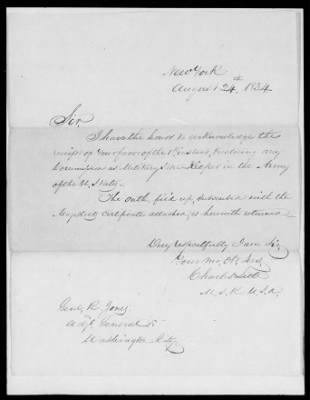 New York
August 24th, 1834
Sir,
I have the honor to acknowledge the
receipt of your favor of the instant, enclosing my
Commission as Military Store Keeper in the Army
of the U. States.
The oath, filled up, subscribed with the
Magistrates Certificate attached, is herewith returned
Very respectfully I am Sir,
Your Mo. Ob. Serv.
Charles
M. S. K. U. S. A.
Genl. R. Jones
Adjt. General
Washington City.